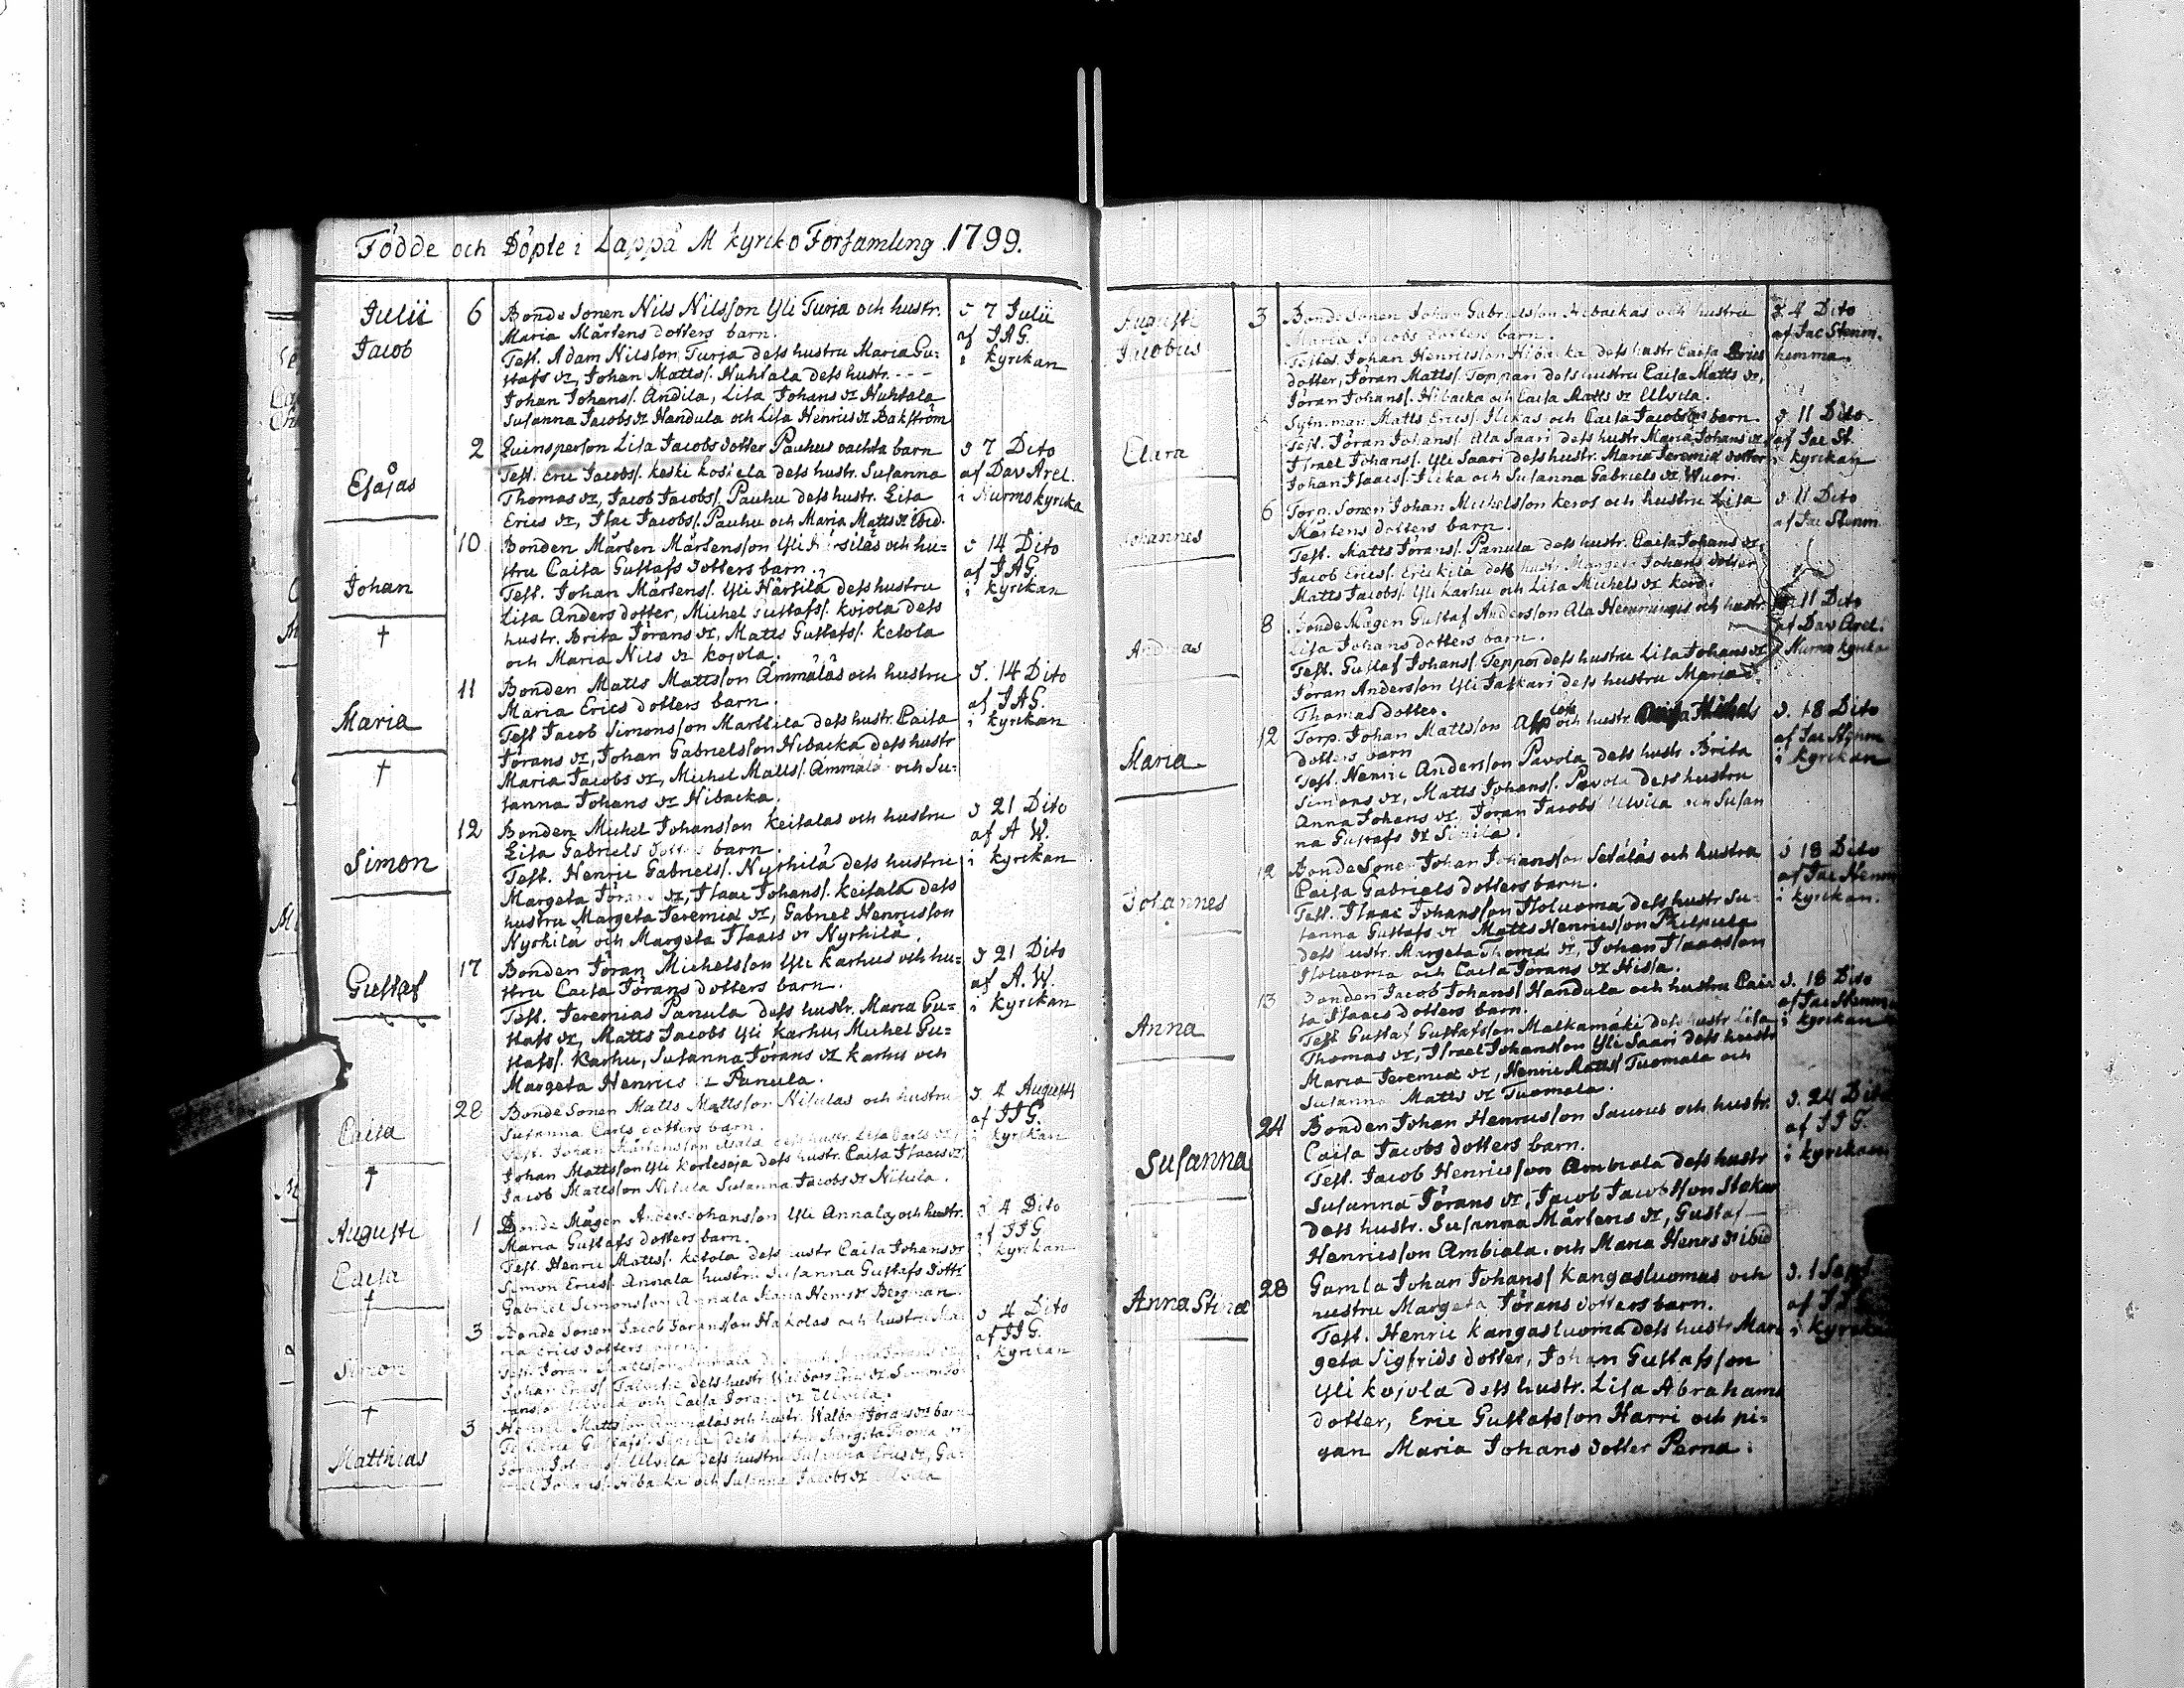 Födde och Döpte i Lappå M kyrko Forsamling 1799.
Julii 6 Bonde Sonen Nils Nilsson Yli Turja och hustr. D 7 Julii
Jacob Maria Mårtens dotters barn. af JAG.
Test. Adam Nilsson Turja dess hustru Maria Gu= i kyrkan
stafs dr, Johan Matts/. Huhtala dess hustr. - - -
Johan Johans/. Andila, Lisa Johans dr Huhtala
Susanna Jacobs dr Handula och Lisa Henrics dr Bakström
2 Quinsperson Lisa Jacobs dotter Pauhus oächta barn D 7 Dito
Esajas Test. Eric Jacobs/. keski kosiela dess hustr. Susanna af Dav Arel.
Thomas dr, Jacob Jacobs/. Pauhu dess hustr. Lisa i Nurmo kyrka
Erics dr, Isac Jacobs/. Pauhu och Maria Matts dr ibid.
10 Bonden Mårten Mårtensson Yli och hu= D 14 Dito
stru Caisa Gustafs dotters barn. af JAG.
Johan Test. Johan Mårtens/. Yli Härsilä dess hustru i kyrkan
Lisa Anders dotter, Michel Gustafs/. kojola dess
† hustr. Brita Jörans dr, Matts Gustafs/. ketola
och Maria Nils dr kojola.
11 Bonden Matts Mattsson Ämmäläs och hustru D. 14 Dito
Maria Erics dotters barn. af JAG.
Maria Test Jacob Simonsson Marttila dess hustr. Caisa i kyrkan
Jörans dr, Johan Gabrielsson Hibacka dess hustr
† Maria Jacobs dr, Michel Matts/. Ämmälä och Su=
sanna Johans dr Hibacka.
12 Bonden Michel Johansson keisalas och hustru D 21 Dito
Lisa Gabriels dotters barn. af A W.
Simon Test. Henric Gabriels/. Nyrhilä dess hustru i kyrkan
Margeta Jörans dr, Isaac Johans/. keisala dess
hustru Margeta Jeremiæ dr, Gabriel Henricsson
Nyrhilä och Margeta Isaacs dr Nyrhilä.
17 Bonden Jöran Michelsson Yli karhus och hu= D 21 Dito
Gustaf stru Caisa Jörans dotters barn. af A.W.
Test. Jeremias Panula dess hustr. Maria Gu= i kyrkan
stafs dr, Matts Jacobs Yli karhu, Michel Gu=
stafs/. Karhu, Susanna Jörans dr karhu och
Margeta Henrics Panula.
28 Bonde Sonen Matts Mattsson Nisulas och hustru D. 4 Augusti
Caisa Susanna Carls dotters barn. af JJG.
Test. Johan Mårtensson dess hustr. Lisa Carls dr, i kyrkan
† Johan Mattsson Yli korlesoja dess hustr. Caisa Isaacs dr
Jacob Mattsson Nisula Susanna Jacobs dr Nisula.
Augusti 1 Bonde Mågen Anders Johansson Yli Annalas och hustr. D 4 Dito
Maria Gustafs dotters barn. af JJG
Caisa Test. Henric Matts/. ketola dess hustr Caisa Johans dr i kyrkan
† Simon Erics/. Annala hustru Susanna Gustafs dott:
Gabriel Simonsson Annala Maria Henrs dr Bergman.
3 Bonde Sonen Jacob Joransson Hakolas och hustru Ma= D 4 Dito
ria Erics dotters barn. af JJG.
Simon Test. Jöran Mattsson i kyrkan
Johan Erics/. dess hustr. Walborg Erics dr, Simon Jö=
ransson Ulvila och Caisa Jörans dr Ulvila.
† 3 Henric Mattsson Ämmäläs och hustr. Walborg Jörans dr barn
Matthias Gustafs/. dess hustru Margeta Thomæ dr
Jöran Johans/. Ulvila dess hustru Susanna Erics dr, Ga=
briel Johans/. Hibacka och Susanna Jacobs dr Ulvila
Augusti 3 Bonde Sonen Johan Gabrielsson Hibackas och hustru D 4 Dito
Jacobus Maria Jacobs dotters barn. af Jac Stenm.
Testes. Johan Henricsson Hibacka dess hustr Caisa Erics hemma.
dotter, Jöran Matts/. Toppari dess hustru Caisa Matts dr,
Jöran Johans/. Hibacka och Caisa Matts dr Ullvila.
Sytn.man Matts Erics/. Ilckas och Caisa Jacobs dr barn D 11 Dito
Test. Jöran Johans/. Ala Saari dess hustr Maria Johans dr af Jac St.
Clara Israel Johans/. Yli Saari dess hustr. Maria Jeremiæ dotter i kyrkan
Johan Isaacs/. Ilcka och Susanna Gabriels dr Wuori.
6 Torp. Sonen Johan Michelsson keros och hustru Lisa D 11 Dito
Mårtens dotters barn. af Jac Stenm
Johannes Test. Matts Jörans/. Panula dess hustr. Caisa Johans dr,
Jacob Erics/. Erickila dess hustr Margeta Johans dotter
Matts Jacobs/. Yli Karhu och Lisa Michels dr kero.
8 Bonde Mågen Gustaf Andersson Ala Hemmingis och hustr. 11 Dito
Lisa Johans dotters barn. af Dav Arel.
Andreas Test. Gustaf Johans/. Teppo dess hustru Lisa Johans dr i Nurmo kyrka
Jöran Andersson Yli Jaskari dess hustru Maria
Thomas dotter.
12 Torp. Johan Mattsson och hustr. Michels D. 18 Dito
dotters barn af Jac Stenm
Maria Test. Henric Andersson Pavola dess hustr. Brita i kyrkan
Simons dr, Matts Johans/. Pavola dess hustru
Anna Johans dr Jöran Jacobs/ Ulvila och Susan
na Gustafs dr Sipilä.
12 Bonde Sonen Johan Johansson Setäläs och hustru D 18 Dito
Caisa Gabriels dotters barn. af Jac Stenm
Johannes Test. Isaac Johansson Iloluoma dess hustr Su= i kyrkan.
sanna Gustafs dr Matts Henricsson Philpula
dess hustr. Margeta Thomæ dr, Johan Isaacsson
Iloluoma och Caisa Jörans dr Hissa.
13 Bonden Jacob Johans/ Handula och hustru Cai D. 18 Dito
sa Isaacs dotters barn. af Jac Stenm
Anna Test Gustaf Gustafsson Malkamäki dess hustr Lisa i kyrkan
Thomas dr, Israel Johansson Yli Saari dess hustr
Maria Jeremiæ dr, Henric Matts/ Tuomala och
Susanna Matts dr Tuomala.
24 Bonden Johan Henricsson Saurus och hustr. D. 24 Dito
Caisa Jacobs dotters barn. af JJG.
Susanna Test. Jacob Henricsson Ambiala dess hustr i kyrkan
Susanna Jörans dr, Jacob Jacobsson Stakar
dess hustr. Susanna Mårtens dr, Gustaf
Henricsson Ambiala och Maria Henrs dr ibid
28 Gamla Johan Johans/ Kangasluomas och D. 1 Sept
Anna Stina hustru Margeta Jörans dotters barn. af
Test. Henric kangasluoma dess hustr Mar= i kyrkan
geta Sigfrids dotter, Johan Gustafsson
Yli kojola dess hustr. Lisa Abrahams
dotter, Eric Gustafsson Harri och pi=
gan Maria Johans dotter Perna.